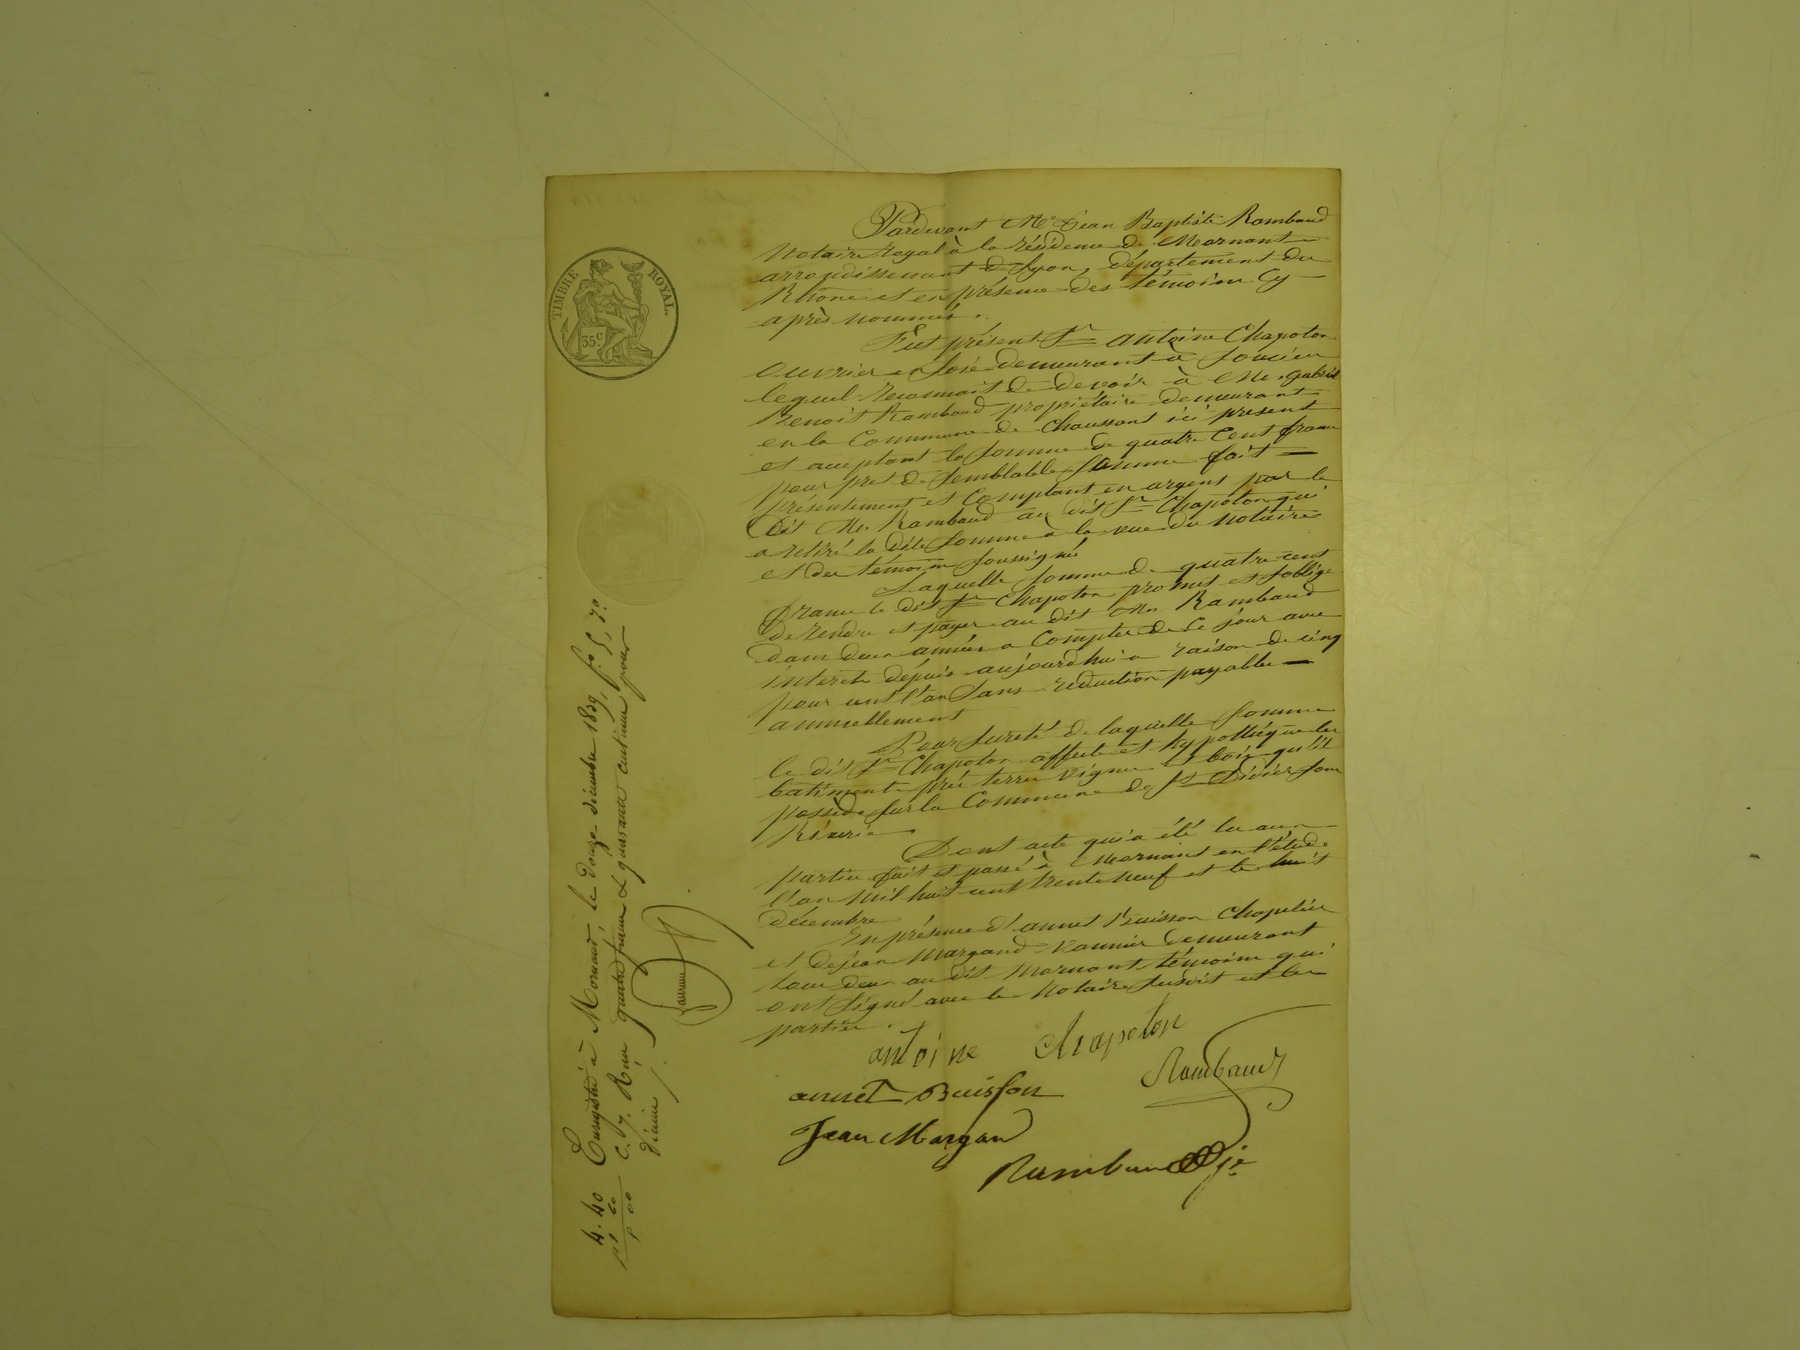 Pardevant Me Jean Baptiste Rambaud
Notaire royal à la résidence de Mornant
arrondissement de Lyon, département du
Rhône et en présence des témoins cy
après nommés.
Fut présent Sr antoine Chapoton
ouvrier en soie demeurant à Soucieu
lequel reconnait de devoir à Mr. gabriel
Benoit Rambaud propriétaire demeurant
en la Commune de Chaussant ici présent
et acceptant la somme de quatre Cent francs
pour pret de semblable somme fait
présentement et Comptant en argent par le
dit Mr. Rambaud au dit Sr Chapoton qui
a retiré la dite somme a la vue du notaire
et des témoins soussignés
Laquelle somme de quatre cent
francs le dit Sr Chapoton promet et s'oblige
de rendre et payer au dit Mr Rambaud
dans deux années a Compter de Ce jour avec
interets depuis aujourd'hui a raison de cinq
pour cent l'an sans reduction payables
annuellement
Pour sureté de laquelle somme
le dit Sr Chapoton affecte et hypothèque les
batiments pré terres vignes et bois qu'il
possède sur la Commune de St Didier sous
Riverie
Dont acte qui a été lu aux
parties fait et passé à Mornant en l'étude
l'an mil huit cent trente neuf et le huit
décembre
En présence d'annet Buisson Chapelier
et de jean Margand vannier demeurant
tous deux au dit Mornant témoins qui
ont signé avec le Notaire susdit et les
parties.
antoine Chapoton
Rambaud
annet Buisson
Jean Margan
Rambaud
TIMBRE ROYAL
35c
Enregistré à Mornant, le douze décembre 1839, fo. 5, Ro.
C. 7. Reçu quatre francs & quarante centimes pour
décime
4.40